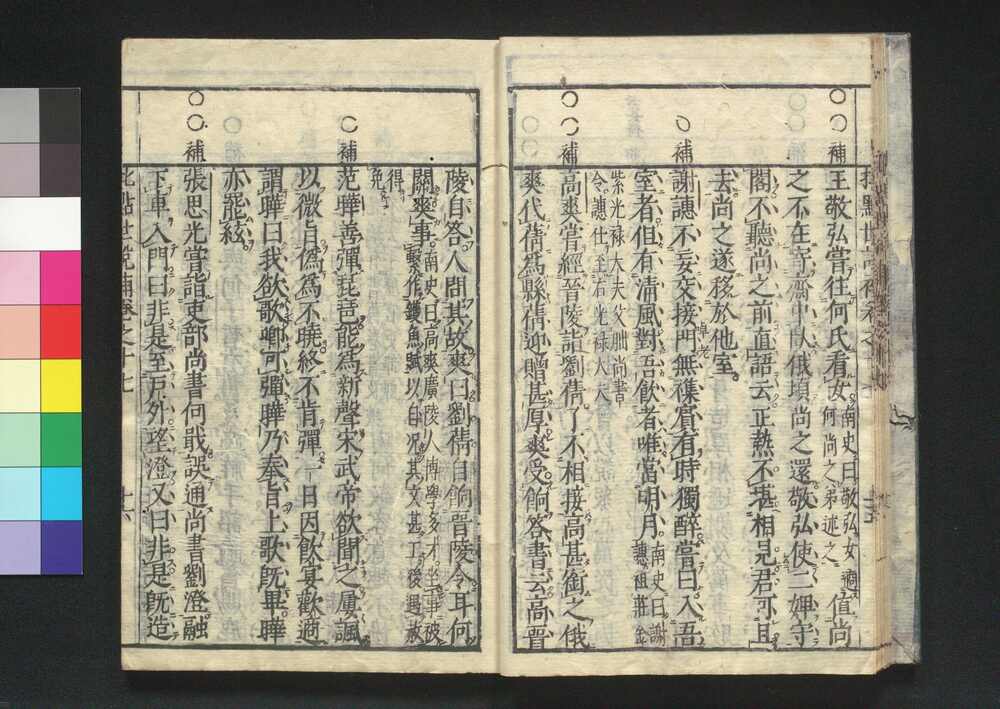 補
王敬弘嘗往何氏看女南史曰敬弘女適何尚之弟述之值尚
之不在寄齋中臥俄頃尚之還敬弘使二婢守
閤不聽尚之前直語云正熱不堪相見君可且
去尚之遂移於他室
補
謝譓不妄交接門無雜賓有時獨醉嘗曰入吾
室者但有清風對吾飲者唯當明月南史曰謝譓祖莊金
紫光祿大夫父朏尚書令譓仕至右光祿大夫
補
高爽嘗經晉陵詣劉蒨了不相接高甚銜之俄
爽代蒨為縣蒨迎贈甚厚爽受餉答書云高晉
陵自答人問其故爽曰劉蒨自餉晉陵令耳何
關爽事南史曰高爽廣陵人博學多才坐事被繫作鑊魚賦以自況其文甚工後遇赦
得免
補
范曄善彈琵琶能為新聲宋武帝欲聞之屢諷
以微旨偽為不曉終不肯彈一日因飲宴歡適
謂曄曰我欲歌卿可彈曄乃奉旨上歌既畢曄
亦罷絃
補
張思光嘗詣吏部尚書何戢誤通尚書劉澄融
下車入門曰非是至戶外望澄又曰非是既造